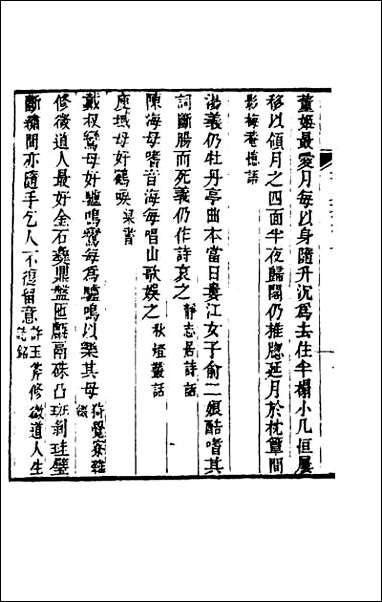 董姬最愛月每以身隨升沉為去住半榻小几但屢
移以領月之四面半夜歸閣仍推牕延月於枕簟間
影梅菴憶語
湯義仍牡丹亭曲本當日婁江女子俞二娘酷嗜其
詞斷腸而死義仍作詩哀之靜志居詩話
陳海母嗜音海每唱山歌娛之秋燈叢話
庾域母好鶴唳梁書
戴叔鸞母好驢鳴鸞每為驢鳴以樂其母猗覺寮雜
修微道人最好金石彝鼎盤匜
斷繡間亦隨手乞人不復留意許玉斧修微道人生
誌銘